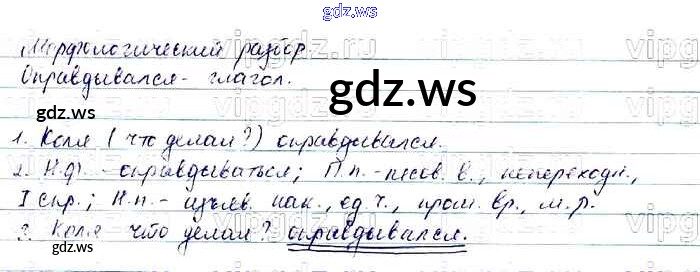 gdz.ws
Морфологический разбор.
Оправдывался - глагол.
gdz.ws
1. Коля (что делал?) оправдывался.
2. Н.ф. - оправдываться; П.п. - несов. в., непереходн.,
I спр.; Н.п. - изъяв. нак., ед.ч., прош. вр., м.р.
3. Коля что делал? оправдывался.
gdz.ws
gdz.ws